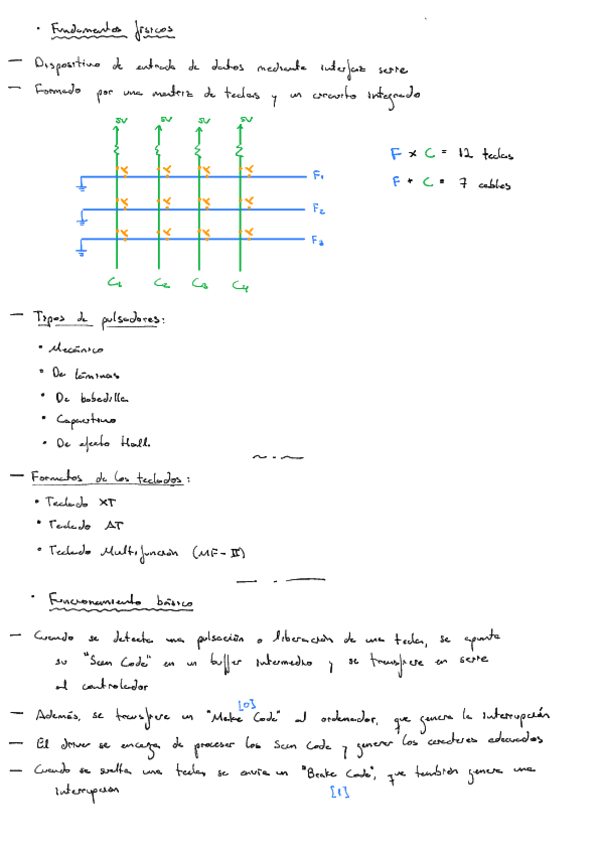 · Fundamentos físicos
— Dispositivo de entrada de datos mediante interfaz serie
— Formado por una matriz de teclas y un circuito integrado
5V 5V 5V 5V
F x C = 12 teclas
F1
F + C = 7 cables
F2
F3
C1 C2 C3 C4
— Tipos de pulsadores:
• Mecánico
• De láminas
• De bobedilla
• Capacitivo
• De efecto Hall.
— Formatos de los teclados:
• Teclado XT
• Teclado AT
• Teclado Multifunción (MF-II)
· Funcionamiento básico
— Cuando se detecta una pulsación o liberación de una tecla, se apunta
su "Scan Code" en un buffer intermedio y se transfiere en serie
al controlador
[0]
— Además, se transfiere un "Make Code" al ordenador, que genera la interrupción
— El driver se encarga de procesar los Scan Code y generar los caracteres adecuados
— Cuando se suelta una tecla, se envía un "Brake Code", que también genera una
interrupción
[1]